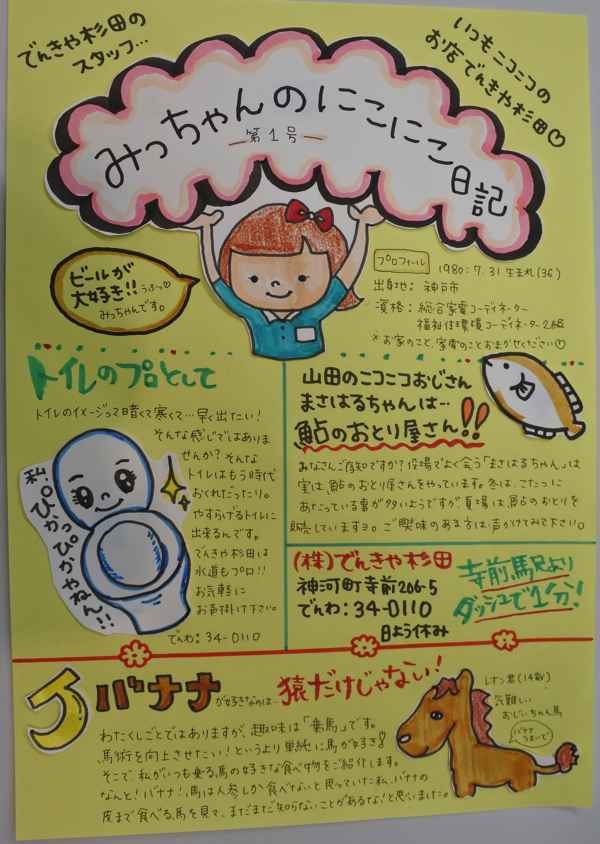 でんきや杉田の
スタッフ…
いつもニコニコの
お店でんきや杉田♡
みっちゃんのにこにこ日記
第1号
ビールが
大好き!!うふっ♡
みっちゃんです。
プロフィール
1980.7.31生まれ(36)
出身地: 神戸市
資格: 総合家電コーディネーター
福祉住環境コーディネーター2級
*お家のこと、家電のことおまかせください♡
トイレのプロとして
トイレのイメージって暗くて寒くて…早く出たい!
そんな感じではありま
せんか?そんな
トイレはもう時代
おくれだったり。
やすらげるトイレに
出来るんです。
でんきや杉田は
水道もプロ!!
お気軽に
お声掛け下さい。
でんわ:34-0110
私、ぴかっぴかやねん!!
山田のニコニコおじさん
まさはるちゃんは…
鮎のおとり屋さん!!
みなさんご存知ですか?役場でよく会う「まさはるちゃん」は
実は、鮎のおとり屋さんをやっています。冬は、こたつに
あたっている事が多いようですが、夏場は、鮎のおとりを
販売していますヨ。ご興味のある方は声かけてみて下さい。
(株)でんきや杉田
神河町寺前206-5
でんわ:34-0110
日よう休み
寺前駅より
ダッシュで1分!
バナナが好きなのは…猿だけじゃない!
わたくしごとではありますが、趣味は「乗馬」です。
馬術を向上させたい!というより単純に馬が好き!
そこで、私がいつも乗る馬の好きな食べ物をご紹介します。
なんと!バナナ!馬は人参しか食べないと思っていた私、バナナの
皮まで食べる馬を見て、まだまだ知らないことがあるな!と思いました。
レオン君(14歳)
気難しい
おじいちゃん馬
バナナ
うまいで